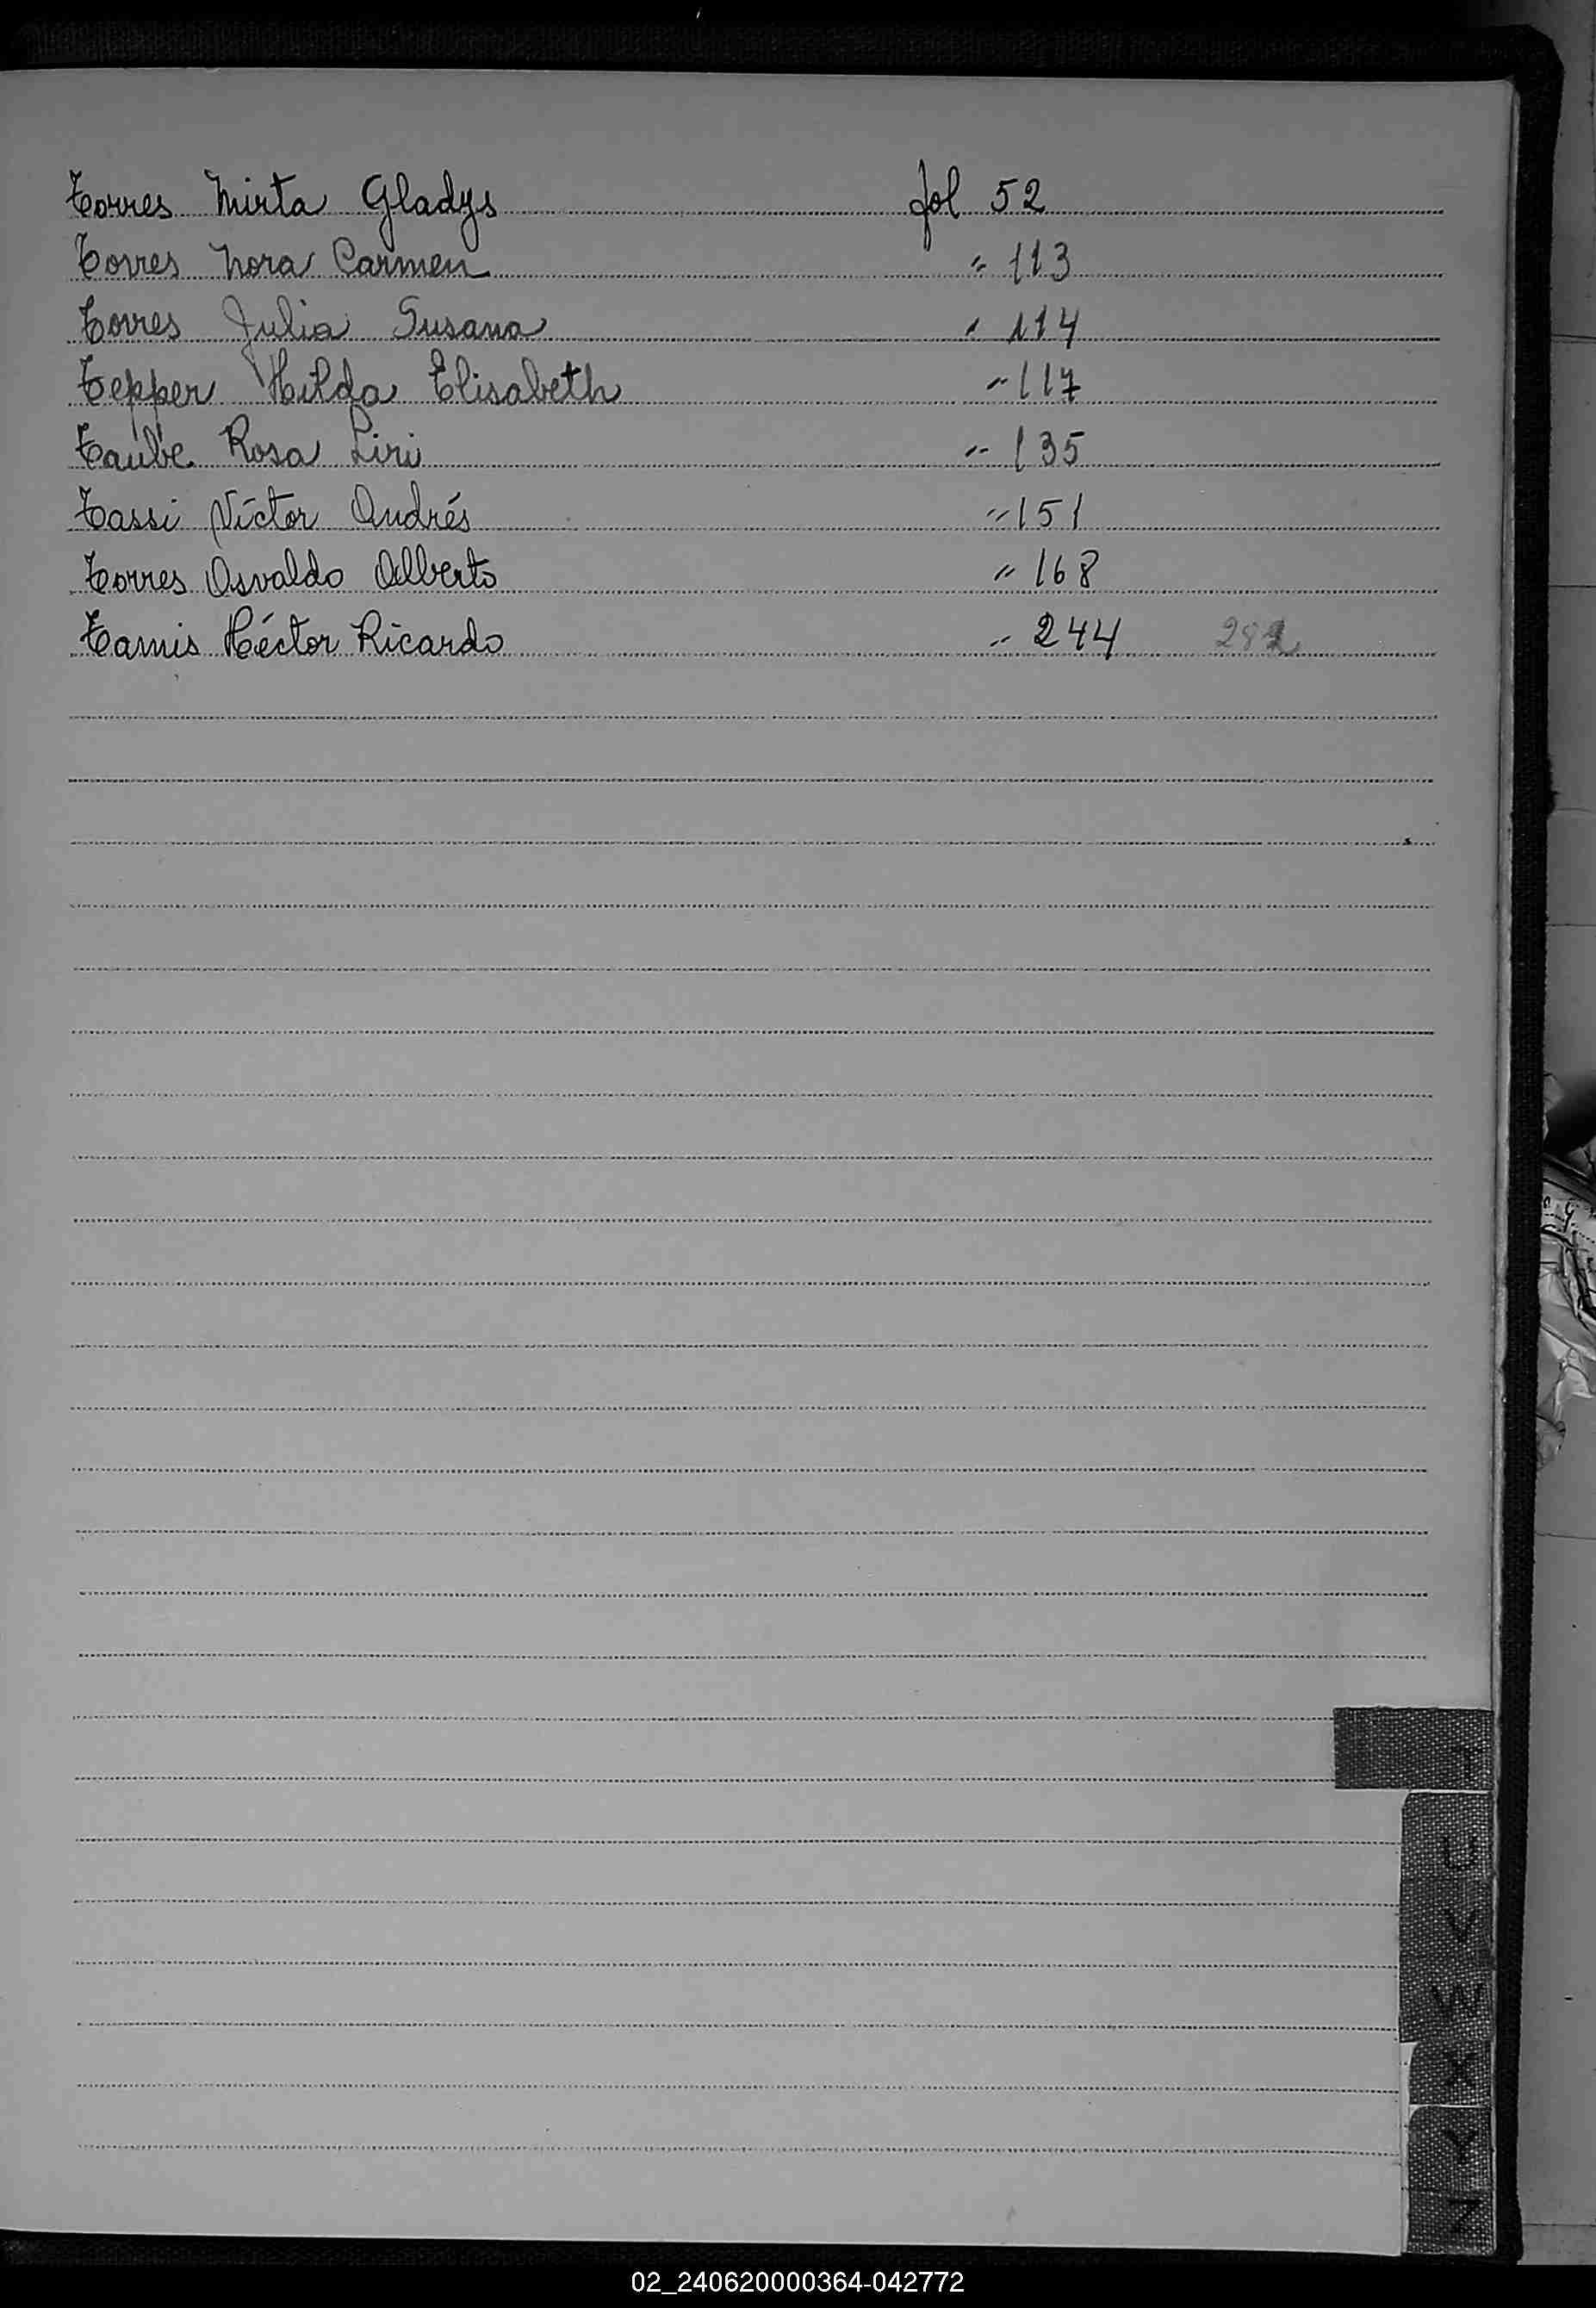 Torres Mirta Gladys fol 52
Torres Nora Carmen " 113
Torres Julia Susana " 114
Tepper Hilda Elisabeth " 117
Taube Rosa Liri " 135
Tassi Víctor Andrés " 151
Torres Osvaldo Alberto " 168
Tamis Héctor Ricardo " 244
T
U
V
W
X
Y
Z
02_240620000364-042772